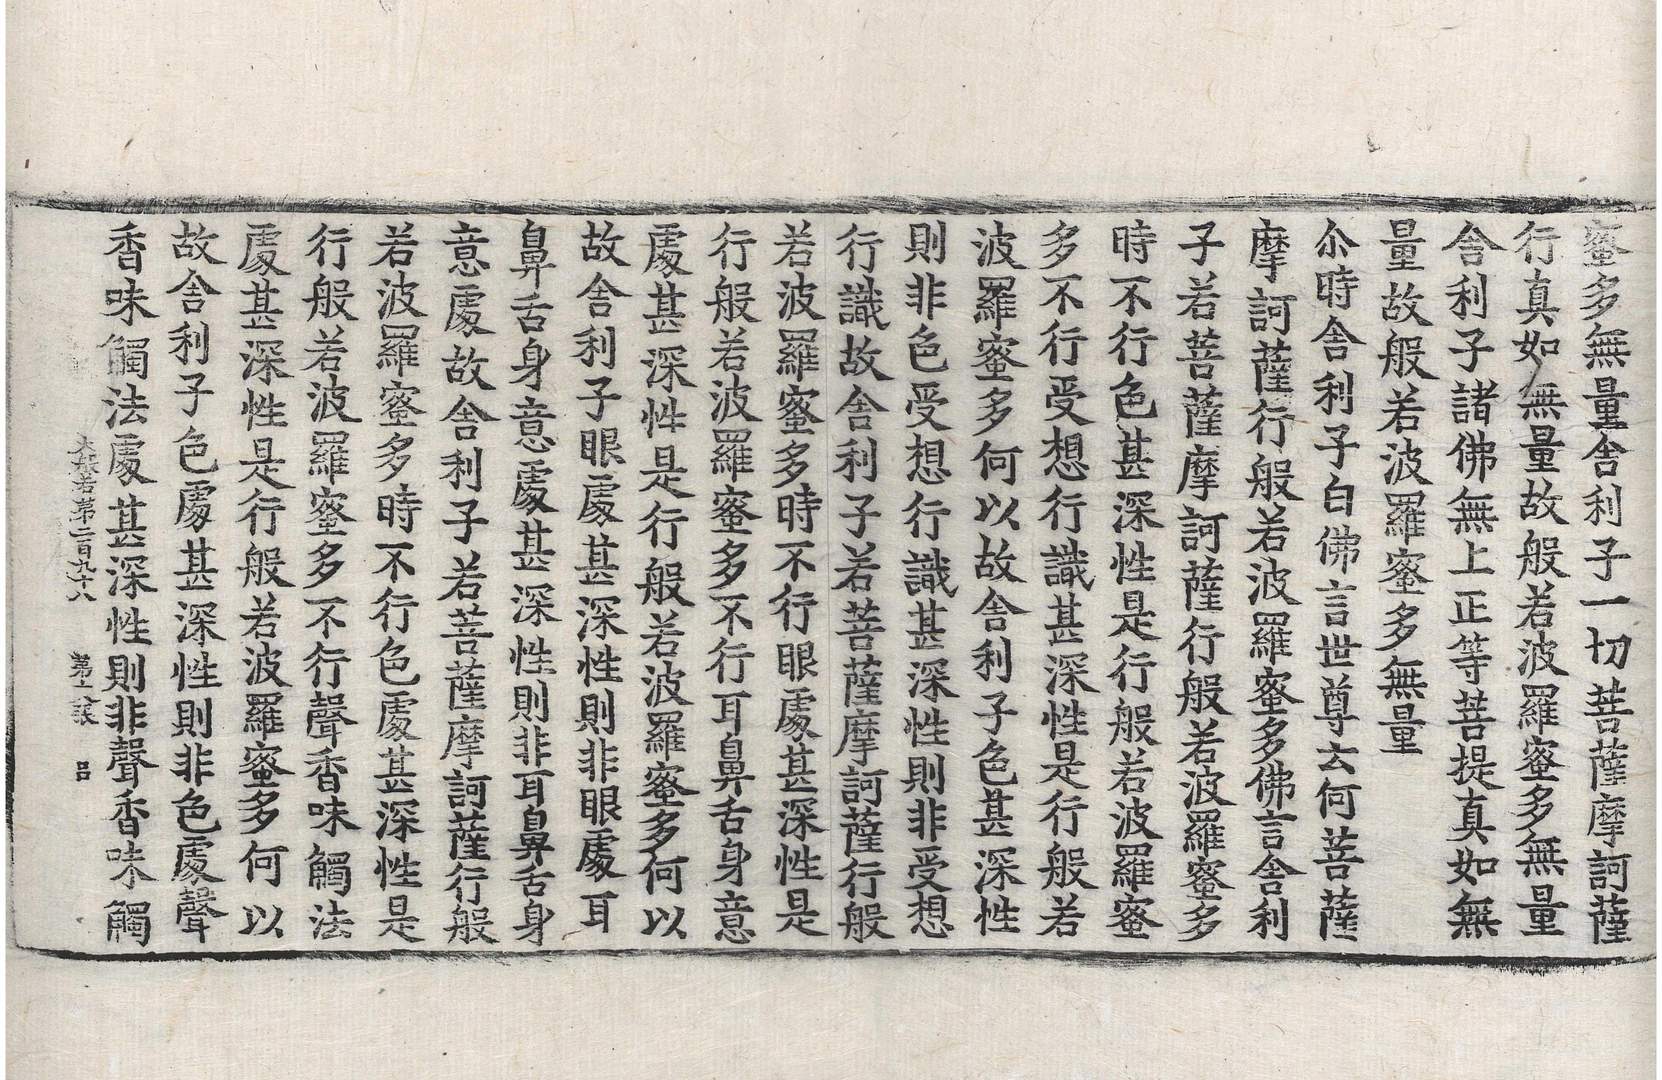 蜜多無量舎利子一切菩薩摩訶薩
行真如無量故般若波羅蜜多無量
舎利子諸佛無上正等菩提真如無
量故般若波羅蜜多無量
尒時舎利子白佛言世尊云何菩薩
摩訶薩行般若波羅蜜多佛言舎利
子若菩薩摩訶薩行般若波羅蜜多
時不行色甚深性是行般若波羅蜜
多不行受想行識甚深性是行般若
波羅蜜多何以故舎利子色甚深性
則非色受想行識甚深性則非受想
行識故舎利子若菩薩摩訶薩行般
若波羅蜜多時不行眼處甚深性是
行般若波羅蜜多不行耳鼻舌身意
處甚深性是行般若波羅蜜多何以
故舎利子眼處甚深性則非眼處耳
鼻舌身意處甚深性則非耳鼻舌身
意處故舎利子若菩薩摩訶薩行般
若波羅蜜多時不行色處甚深性是
行般若波羅蜜多不行聲香味觸法
處甚深性是行般若波羅蜜多何以
故舎利子色處甚深性則非色處聲
香味觸法處甚深性則非聲香味觸
大般若第二百九十八 第 張 吕